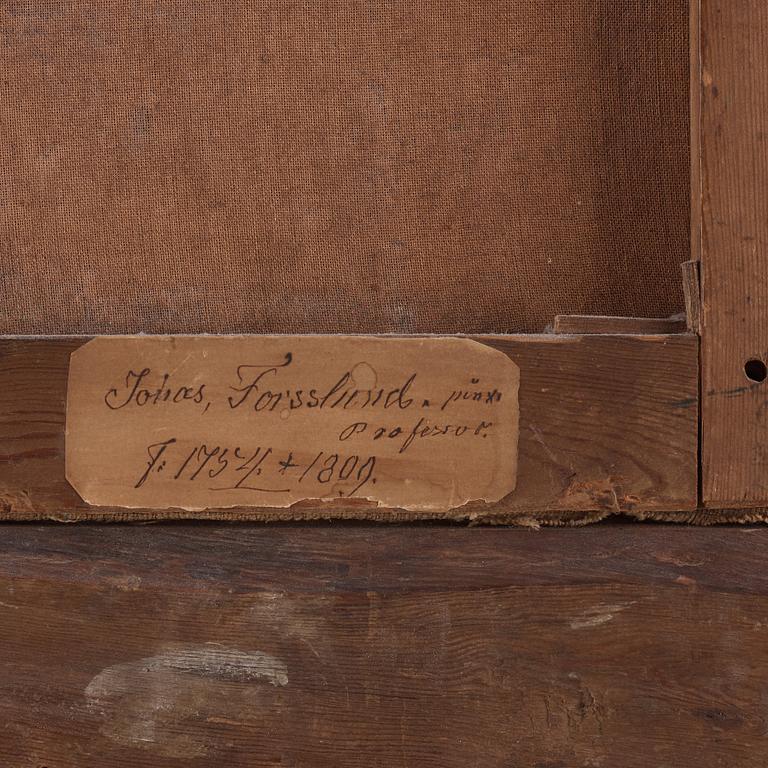 Jonas, Forsslund. pinx:
Professor.
F: 1754. + 1809.